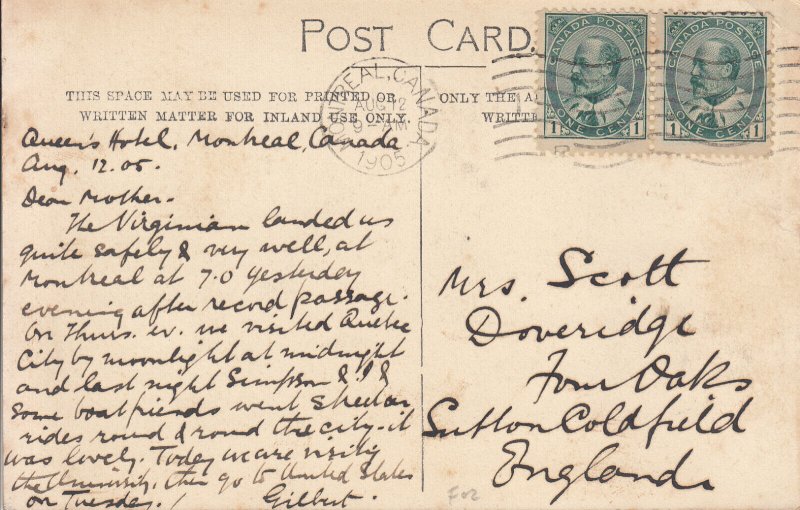 POST CARD.
THIS SPACE MAY BE USED FOR PRINTED OR
WRITTEN MATTER FOR INLAND USE ONLY.
ONLY THE A
WRITT
MONTREAL, CANADA
AUG 12
9-AM
1905
CANADA POSTAGE
1 ONE CENT 1
CANADA POSTAGE
1 ONE CENT 1
Queen's Hotel, Montreal, Canada
Aug. 12. 05.
Dear Mother.
The Virginian landed us
quite safely & very well, at
Montreal at 7.0 yesterday
evening after record passage.
On Thurs. ev. we visited Quebec
City by moonlight at midnight
and last night Simpson & I &
some boat friends went
rides round & round the city - it
was lovely. Today we are visitig
the University, then go to United States
on Tuesday. / Gilbert.
Mrs. Scott
Doveridge
Four Oaks
Sutton Coldfield
England.